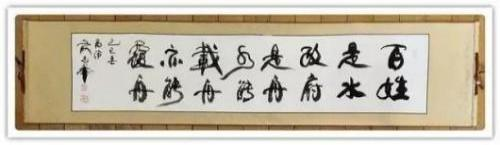 百姓
是水
政府
是舟
水能
載舟
亦能
覆舟